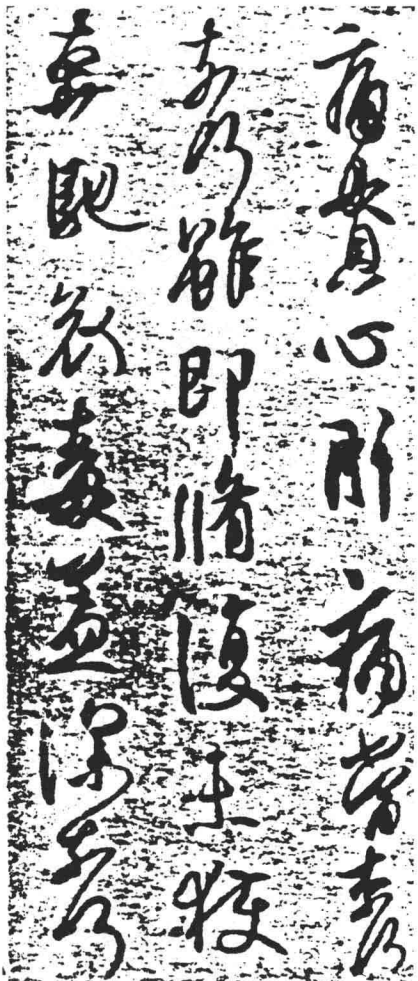 痛貫心肝痛當奈何
奈何雖即脩復未獲
奔馳哀毒益深奈何